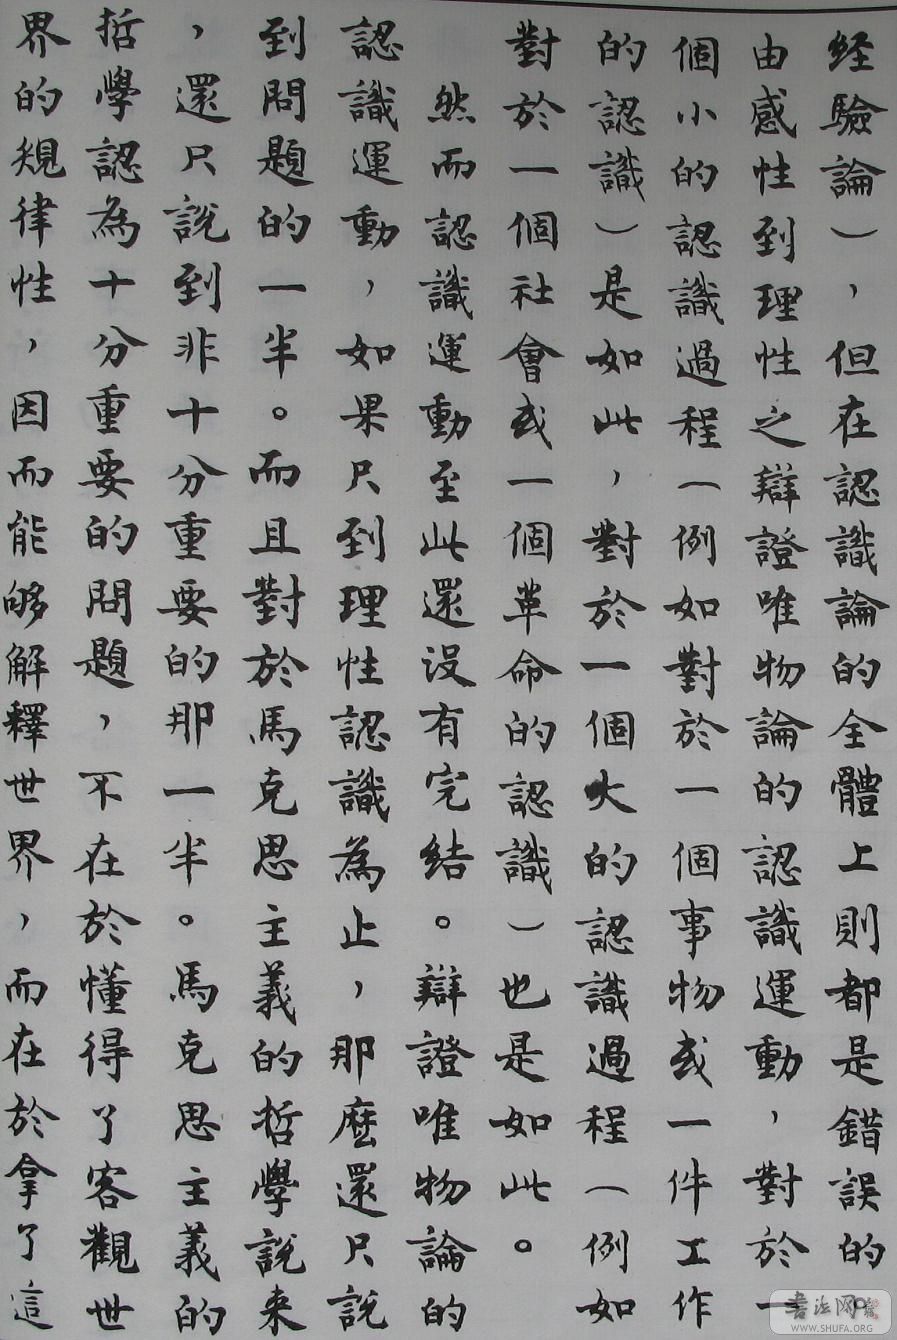 經驗論），但在認識論的全體上則都是錯誤的。
由感性到理性之辯證唯物論的認識運動，對於一
個小的認識過程（例如對於一個事物或一件工作
的認識）是如此，對於一個大的認識過程（例如
對於一個社會或一個革命的認識）也是如此。
然而認識運動至此還没有完結。辯證唯物論的
認識運動，如果只到理性認識為止，那麽還只說
到問題的一半。而且對於馬克思主義的哲學說来
，還只說到非十分重要的那一半。馬克思主義的
哲學認為十分重要的問題，不在於懂得了客觀世
界的規律性，因而能够解釋世界，而在於拿了這
書法网
WWW.SHUFA.ORG